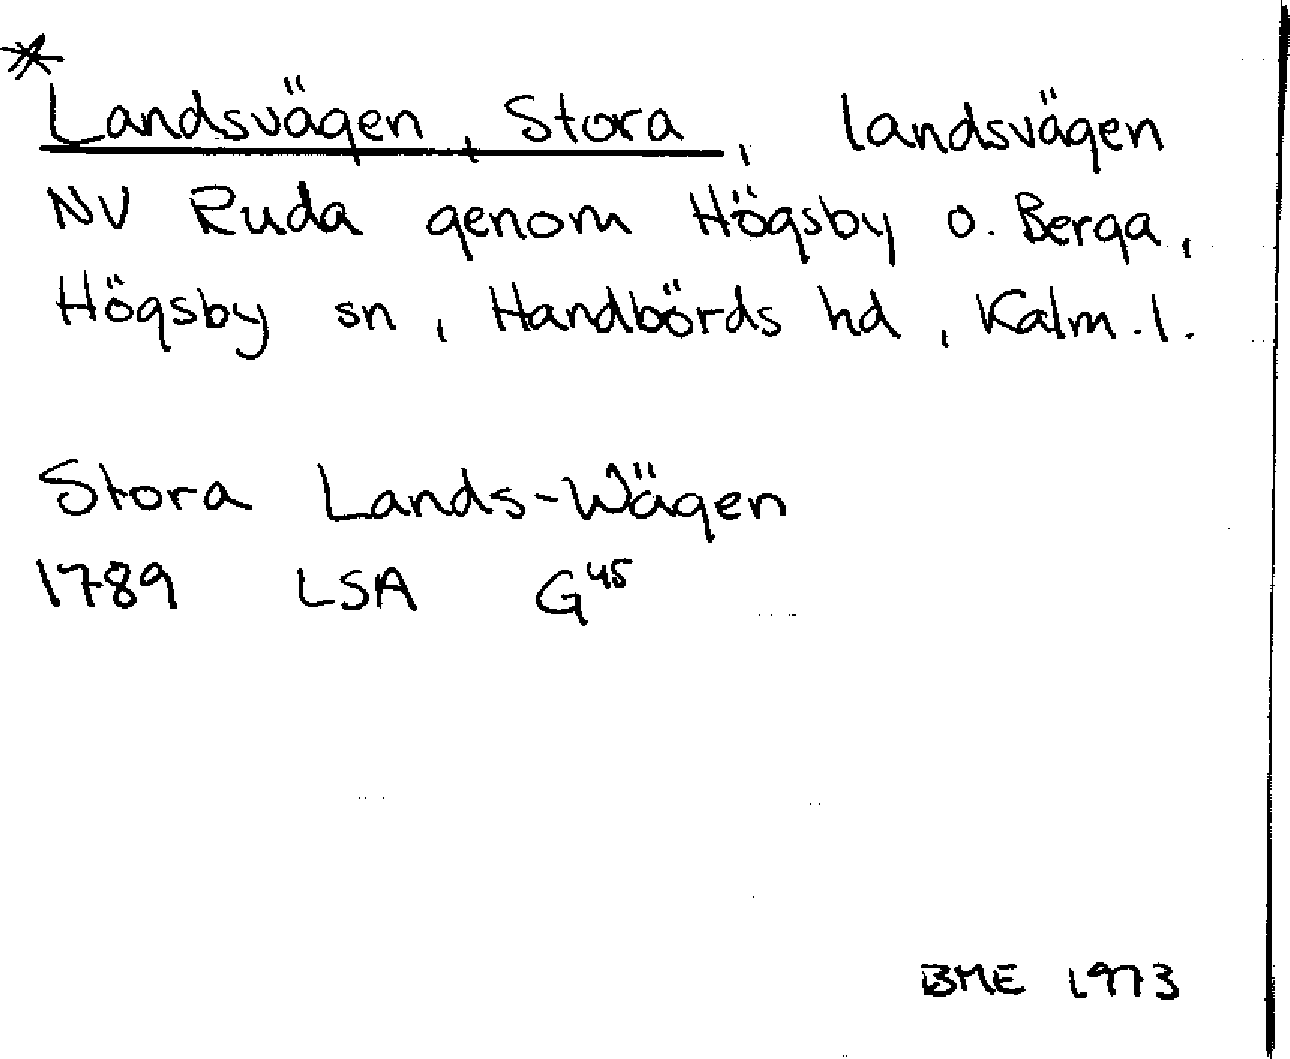 *
Landsvägen, Stora, landsvägen
NV Ruda genom Högsby o. Berga,
Högsby sn, Handbörds hd, Kalm. l.
Stora Lands-Wägen
1789 LSA G45
BME 1973